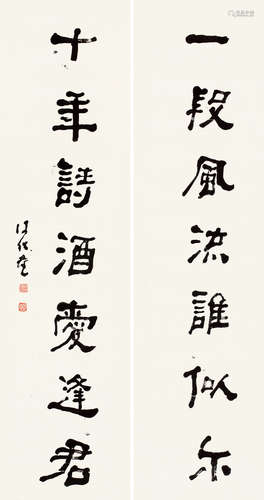 一段風流誰似尔
十年詩酒愛逢君